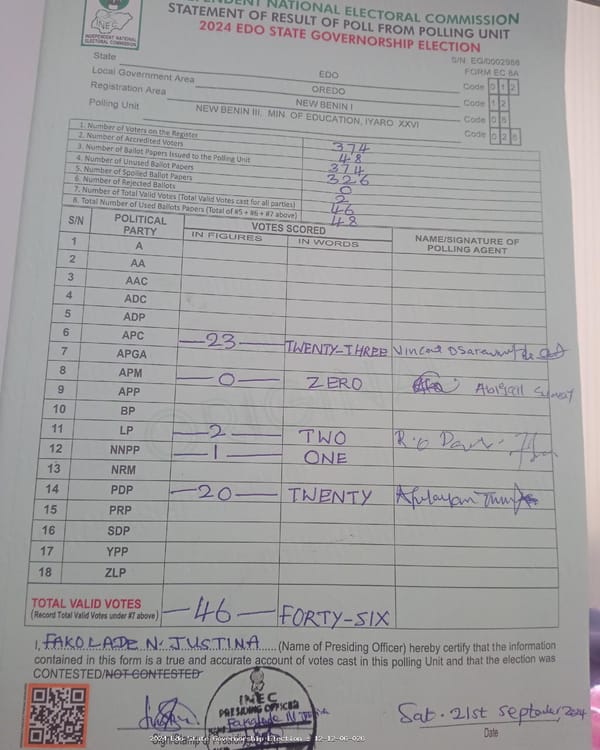 INDEPENDENT NATIONAL ELECTORAL COMMISSION
STATEMENT OF RESULT OF POLL FROM POLLING UNIT
2024 EDO STATE GOVERNORSHIP ELECTION
INEC
INDEPENDENT NATIONAL
ELECTORAL COMMISSION
S/N EG/0002988
FORM EC 8A
State EDO Code 0 1 2
Local Government Area OREDO Code 1 2
Registration Area NEW BENIN I Code 0 6
Polling Unit NEW BENIN III, MIN. OF EDUCATION, IYARO XXVI Code 0 2 6
1. Number of Voters on the Register 374
2. Number of Accredited Voters 48
3. Number of Ballot Papers Issued to the Polling Unit 374
4. Number of Unused Ballot Papers 326
5. Number of Spoiled Ballot Papers 0
6. Number of Rejected Ballots 2
7. Number of Total Valid Votes (Total Valid Votes cast for all parties) 46
8. Total Number of Used Ballots Papers (Total of #5 + #6 + #7 above) 48
S/N POLITICAL PARTY VOTES SCORED NAME/SIGNATURE OF POLLING AGENT
IN FIGURES IN WORDS
1 A
2 AA
3 AAC
4 ADC
5 ADP
6 APC 23 TWENTY-THREE Vincent
7 APGA
8 APM 0 ZERO Abigail Sunday
9 APP
10 BP
11 LP 2 TWO R.O
12 NNPP 1 ONE
13 NRM
14 PDP 20 TWENTY
15 PRP
16 SDP
17 YPP
18 ZLP
TOTAL VALID VOTES 46 FORTY-SIX
(Record Total Valid Votes under #7 above)
I, FAKOLADE N. JUSTINA (Name of Presiding Officer) hereby certify that the information
contained in this form is a true and accurate account of votes cast in this polling Unit and that the election was
CONTESTED/NOT CONTESTED
INEC
PRESIDING OFFICER
Fakolade N. Justina
Sat. 21st September, 2024
Date
2024 Edo State Governorship Election - 12-12-06-026